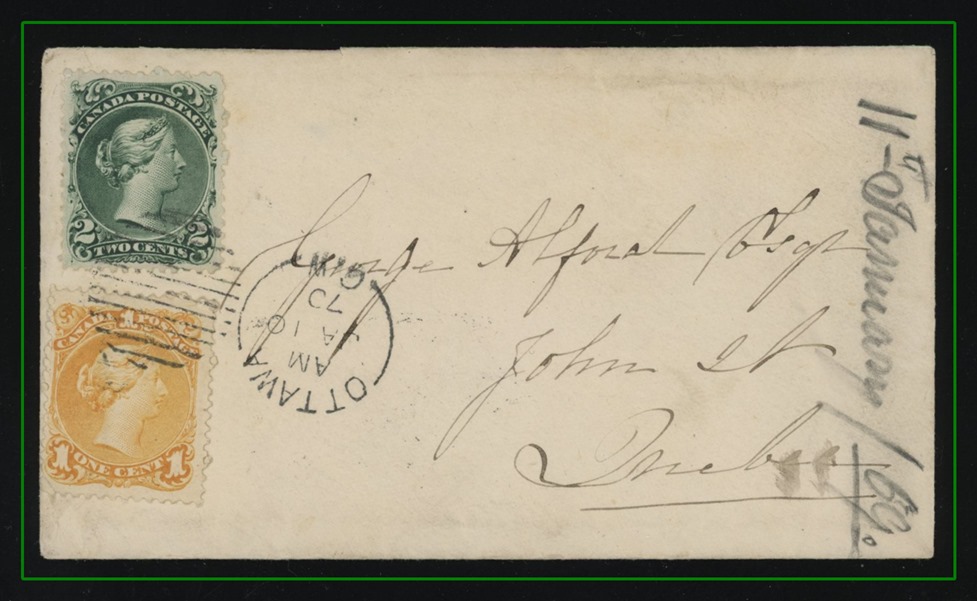 CANADA POSTAGE
2 TWO CENTS 2
CANADA POSTAGE
1 ONE CENT 1
OTTAWA
AM
JA 10
70
George Alford Esqr
John St
Quebec
11th January / 69.